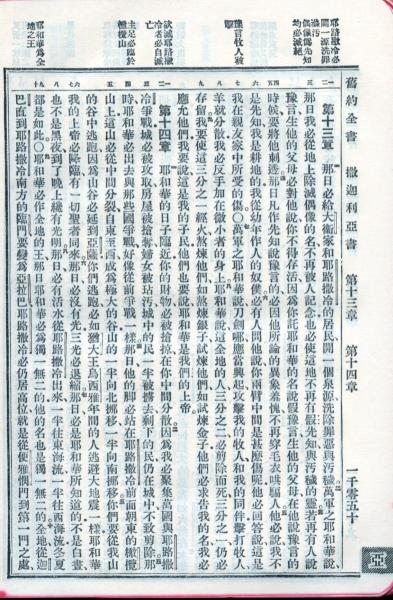 舊約全書　撒迦利亞書　第十三章　第十四章　一千零五十
亞
偶像僞先知
均必滅絕
豫言牧人被
擊
主足必臨於
橄欖山
耶和華爲全
地之王
第十三章　那日必給大衛家和耶路撒冷的居民開一個泉源洗除罪惡與污穢萬軍之耶和華說
那日我必從地上除滅偶像的名不再被人記念也必使這地不再有假先知與污穢的靈若再有人說
豫言生他的父母必對他說你不得存活因爲你託耶和華的名說假豫言生他的父母在他說豫言的
時候要將他刺透那日凡作先知說豫言的必因他所論的異象羞愧不再穿毛衣哄騙人他必說我不
是先知我是耕地的我從幼年作人的奴僕必有人問他說你兩臂中間是甚麼傷呢他必回答說這是
我在親友家中所受的傷〇萬軍之耶和華說刀劍哪應當興起攻擊我的牧人和我的同伴擊打牧人
羊就分散我必反手加在微小者的身上耶和華說這全地的人三分之二必剪除而死三分之一仍必
存留我要使這三分之一經火熬煉他們如熬煉銀子試煉他們如試煉金子他們必求告我的名我必
應允他們我要說這是我的子民他們也要說耶和華是我們的上帝
第十四章　耶和華的日子臨近你的財物必被搶掠在你中間分散因爲我必聚集萬國與耶路撒
冷爭戰城必被攻取房屋被搶奪婦女被玷污城中的民一半被擄去剩下的民仍在城中不致剪除那
時耶和華必出去與那些國爭戰好像從前爭戰一樣那日他的腳必站在耶路撒冷前面朝東的橄欖
山上這山必從中間分裂自東至西成爲極大的谷山的一半向北挪移一半向南挪移你們要從我山
的谷中逃跑因爲山谷必延到亞薩你們逃跑必如猶大王烏西雅年間的人逃避大地震一樣耶和華
我的上帝必降臨有一切聖者同來那日必沒有光三光必退縮那日必是耶和華所知道的不是白晝
也不是黑夜到了晚上纔有光明那日必有活水從耶路撒冷出來一半往東海流一半往西海流冬夏
都是如此〇耶和華必作全地的王那日耶和華必爲獨一無二的他的名也是獨一無二的全地從迦
巴直到耶路撒冷南方的臨門要變爲亞拉巴耶路撒冷必仍居高位就是從便雅憫門到第一門之處